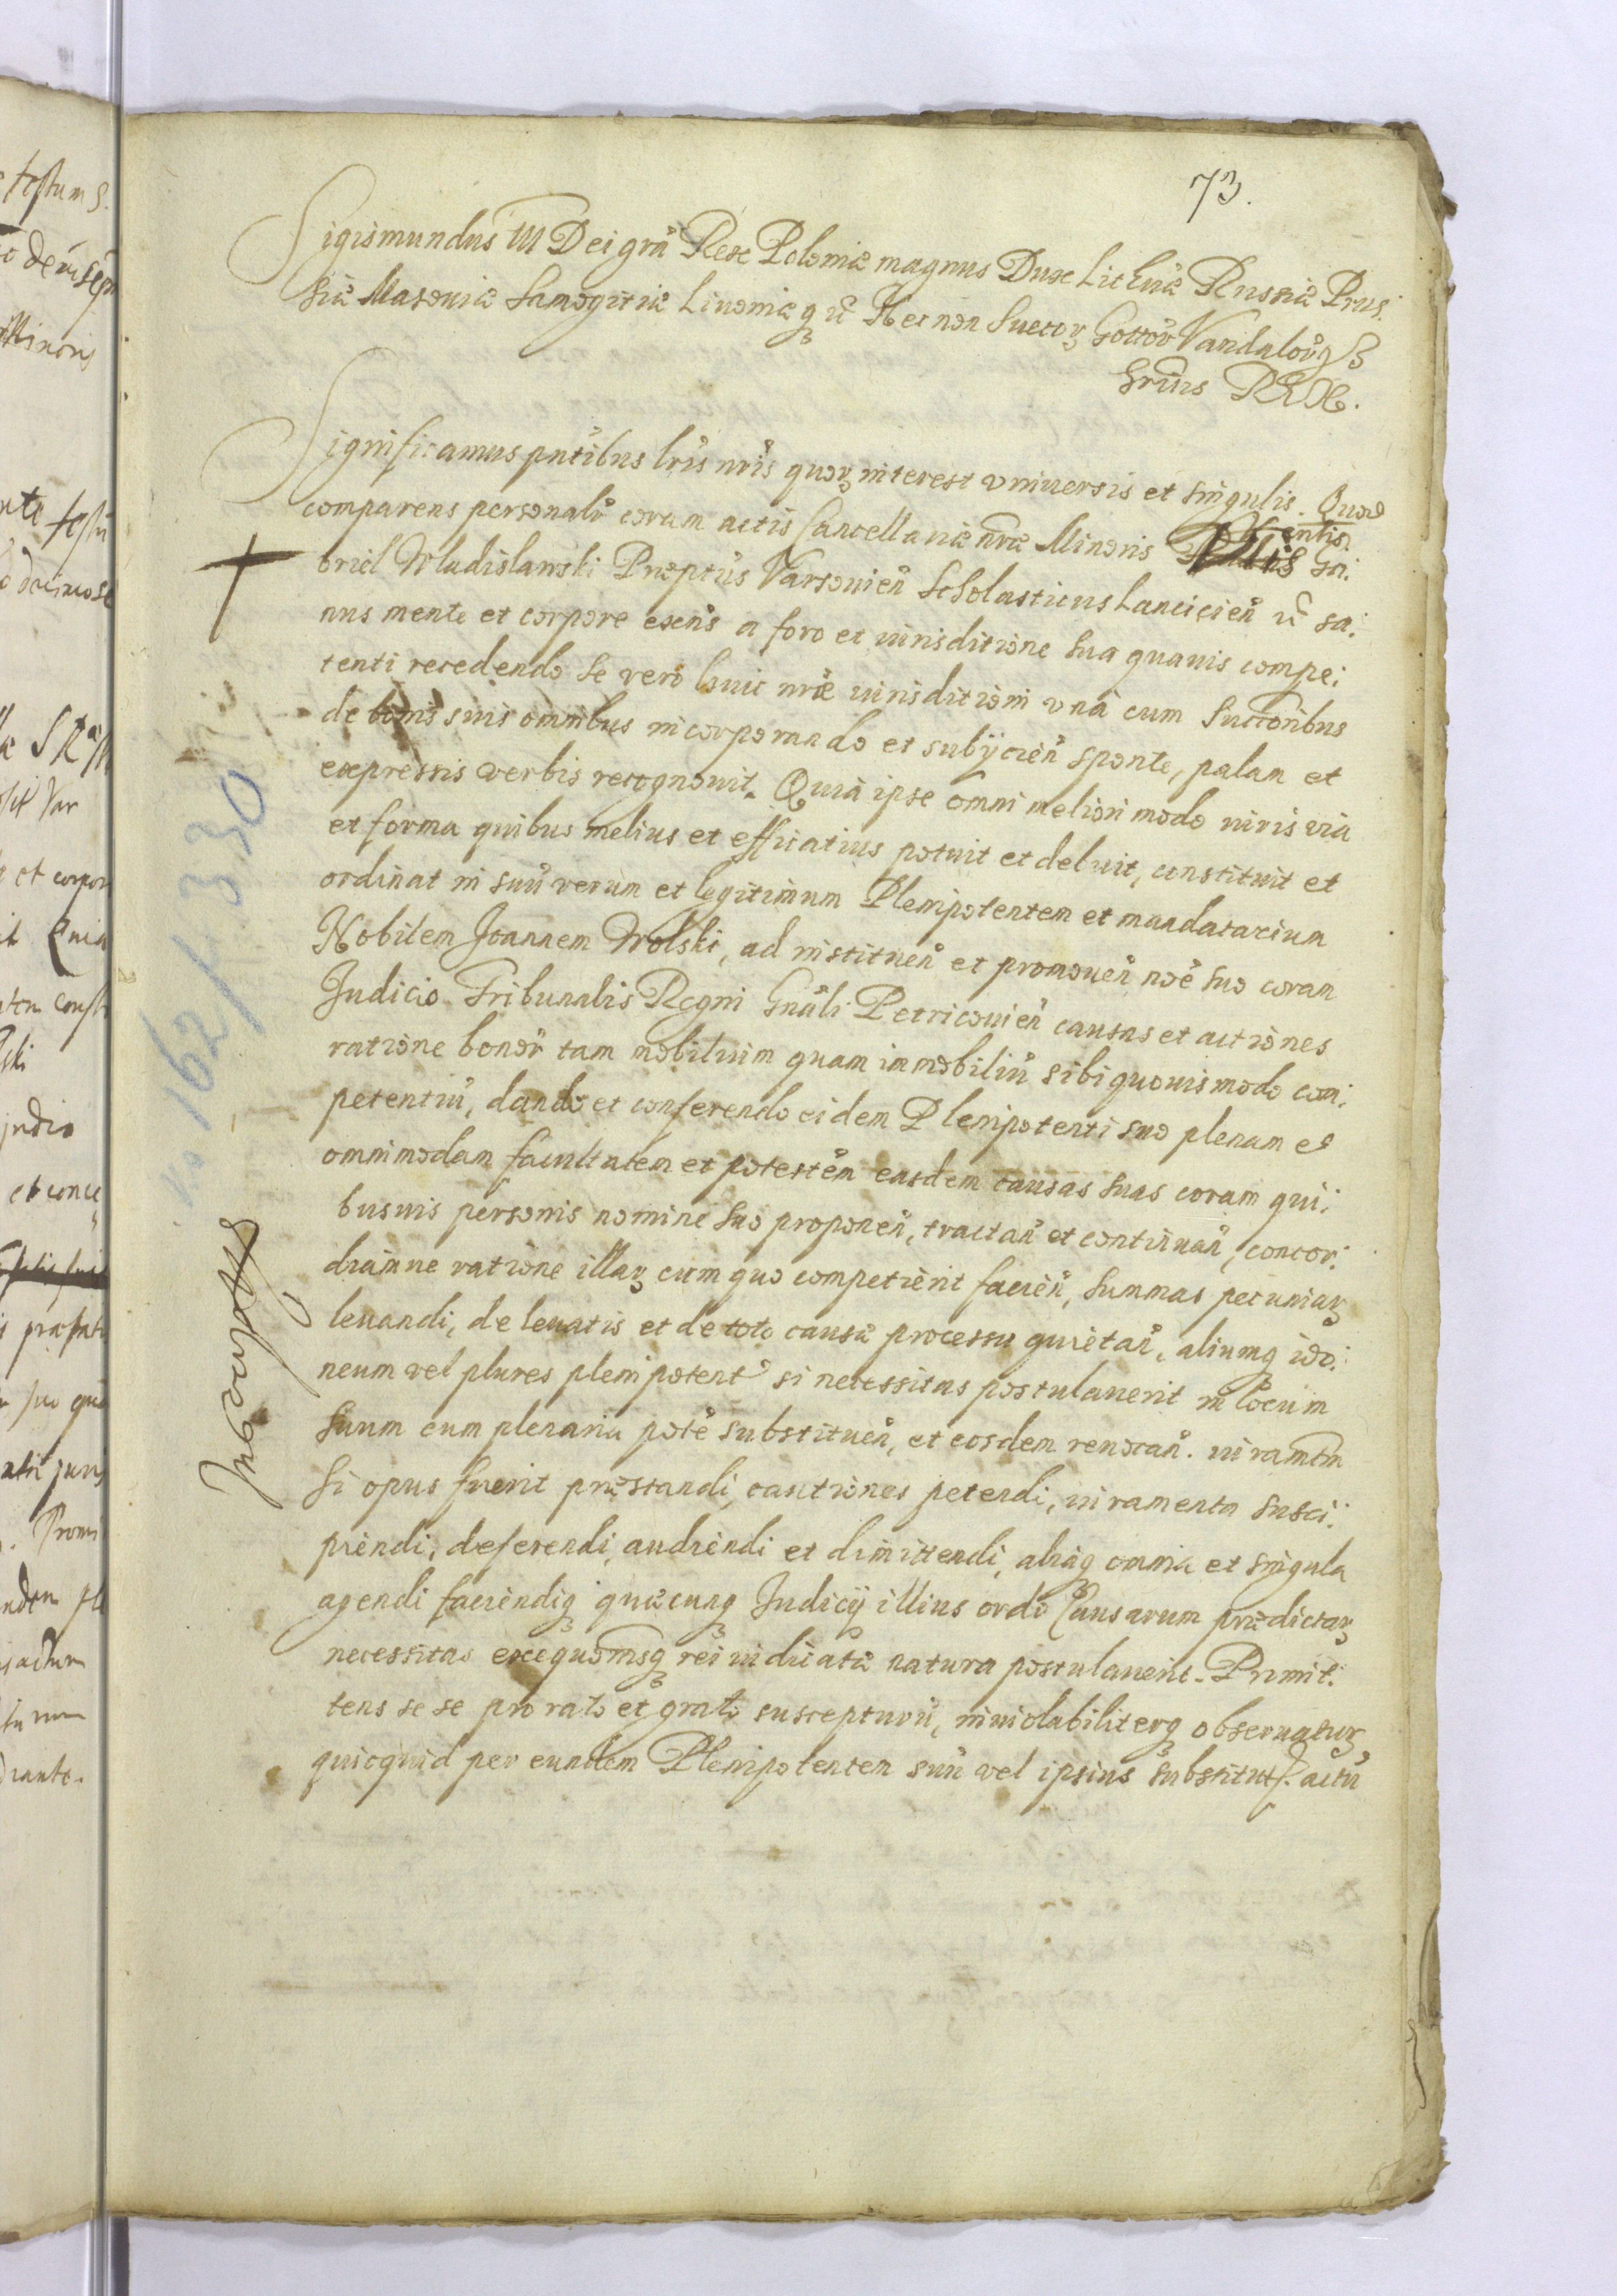 73.
Sigismundus III Dei grã Rex Poloniæ magnus Dux Lithuæ Russiæ Prus:
siæ Masouiæ Samogitiæ Liuoniæq ũ Nec non Suecorꝫ Gottõ Vandaloȓq
hrius REX.
Significamus pntibus lris nris quorꝫ interest vniuersis et singulis. Quod
comparens personalr coram actis Cancellariæ nræ Minoris Ga:
briel Wladislawski Præptus Varsouien Scholasticus Lancicien ũ sa:
nus mente et corpore exens a foro et iurisditione sua quauis compe:
tenti recedendo se vero huic nræ iurisditioni vnà cum Succoribus
de bonis suis omnibus incorporando et subijcien sponte, palam et
expressis verbis recognouit. Quia ipse omni meliori modo iuris via
et forma quibus melius et efficatius potuit et debuit, constituit et
ordinat in suũ verum et legitimum Plenipotentem et mandatarium
Nobilem Joannem Wolski, ad instituen et promouen noe suo coram
Judicio Tribunalis Regni Gnãli Petricouien causas et actiones
ratione bonor tam mobilium quam immobiliũ sibi quouismodo com:
petentiũ, dando et conferendo eidem Plenipotenti suo plenam et
omnimodam facultatem et potestem easdem causas suas coram qui:
busuis personis nomine suo proponen, tractan et continuan, concor:
diamue ratione illarꝫ cum quo competierit facien, summas pecuniarꝫ
leuandi, de leuatis et de toto causæ processu quietan, aliumq ido:
neum vel plures plenipotent si necessitas postulauerit in locum
suum cum plenaria pote substituen, et eosdem reuocan. iuramtm
si opus fuerit præstandi, cautiones petendi, iuramenta susci:
piendi, deferendi, audiendi et dimittendi, aliaq omnia et singula
agendi faciendiq quæcunq Judicij illius ordo Causarum prædictarꝫ
necessitas exequõisq rei iudicatæ natura postulauerit. Promit:
tens se se pro rato et grato suscepturũ, inuiolabiliterq obseruaturꝫ
quicquid per eundem Plenipotentem suũ vel ipsius substitut actũ